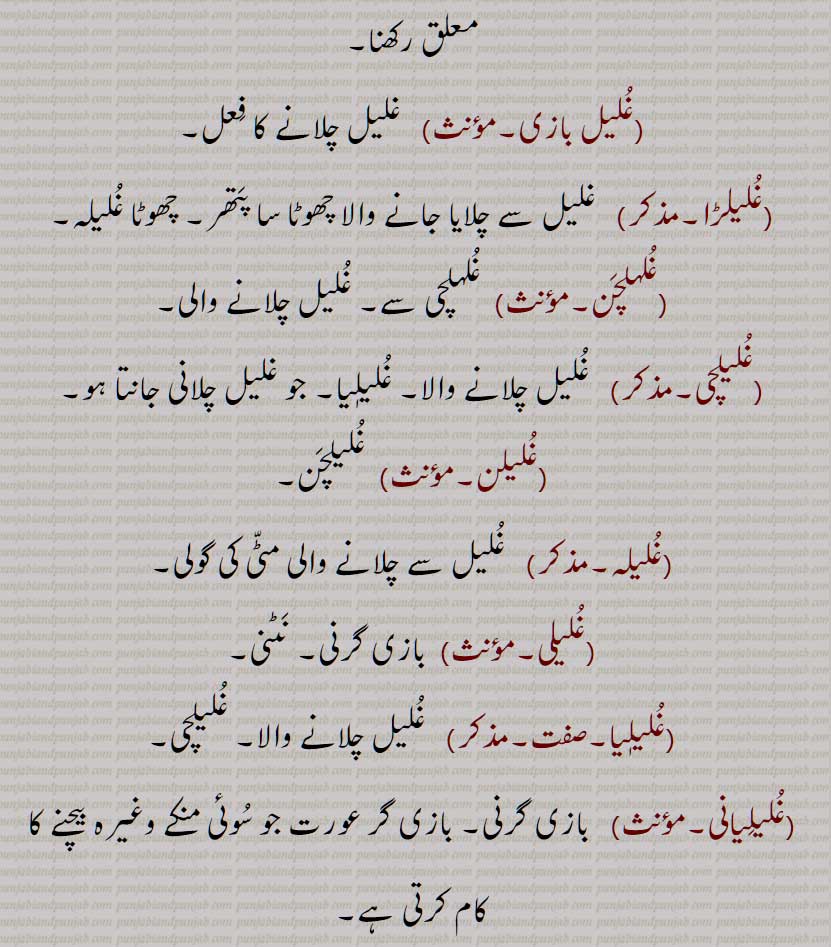 معلق رکھنا۔
(غُلیل بازی۔مؤنث) غلیل چلانے کا فِعل۔
(غُلیلڑا۔مذکر) غلیل سے چلایا جانے والا چھوٹا سا پَتھر۔ چھوٹا غُلیلہ۔
(غُلہلچَن۔مؤنث) غُلہلچی سے۔ غُلیل چلانے والی۔
(غُلیلچی۔مذکر) غُلیل چلانے والا۔ غُلیلِیا۔ جو غلیل چلانی جانتا ہو۔
(غُلیلن۔مؤنث) غُلیلچَن۔
(غُلیلہ۔مذکر) غُلیل سے چلانے والی مٹّی کی گولی۔
(غُلیلی۔مؤنث) بازی گرنی۔ نَٹنی۔
(غُلیلِیا۔صفت۔مذکر) غُلیل چلانے والا۔ غُلیلچی۔
(غُلیلِیانی۔مؤنث) بازی گرنی۔ بازی گر عورت جو سُوئی منکے وغیرہ بیچنے کا
کام کرتی ہے۔